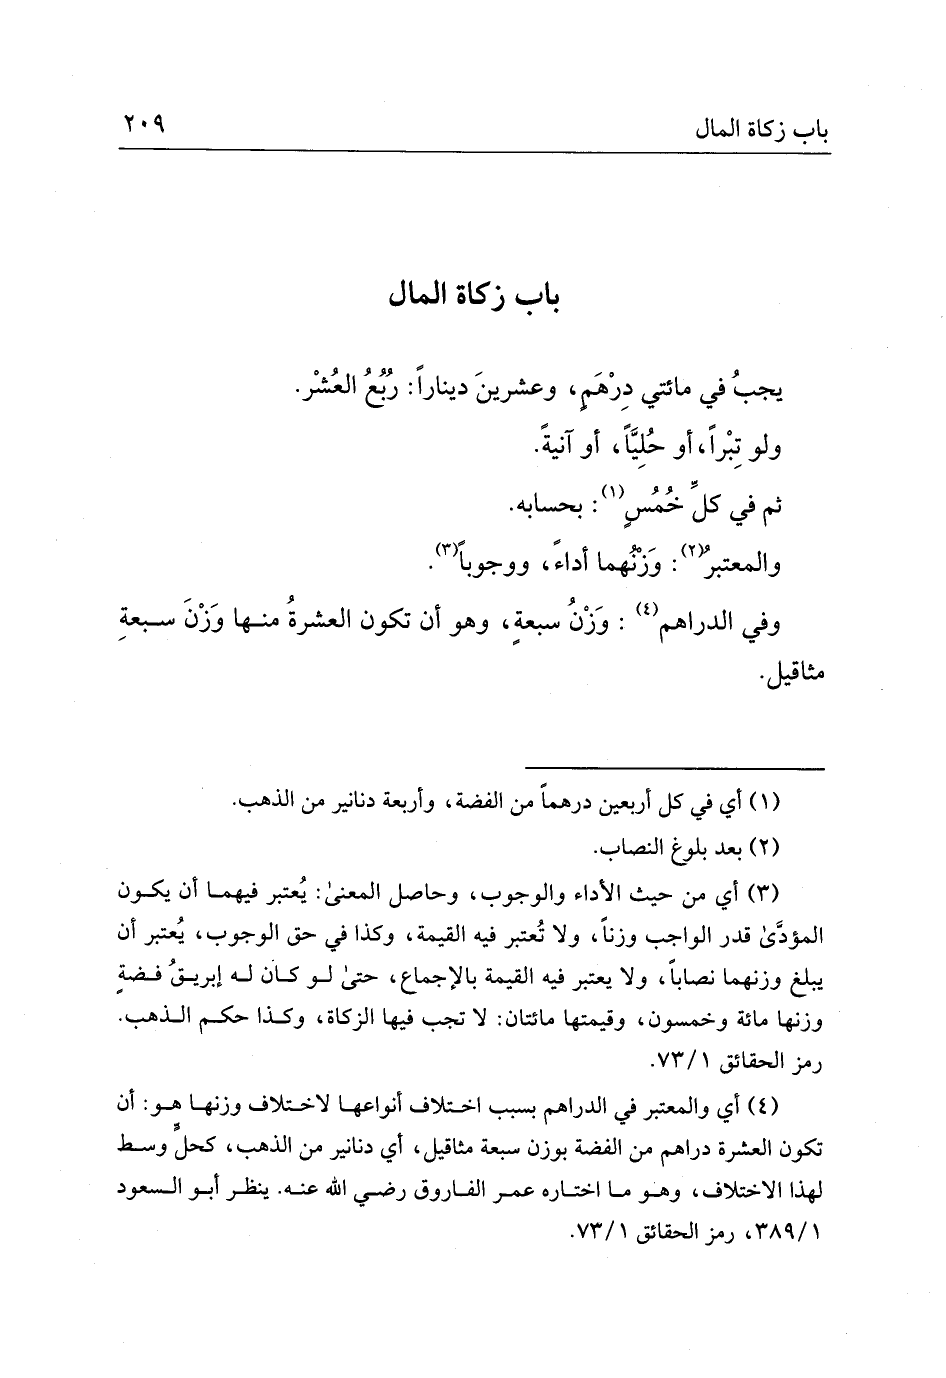 باب زكاة المال ٢٠٩
باب زكاة المال
يجبُ في مائتي دِرْهَمٍ، وعشرينَ ديناراً: رُبُعُ العُشْر.
ولو تِبْراً، أو حُلِيَّاً، أو آنيةً.
ثم في كلِّ خُمُسٍ(١): بحسابه.
والمعتبرُ(٢): وَزْنُهما أداءً، ووجوباً(٣).
وفي الدراهم(٤) : وَزْنُ سبعةٍ، وهو أن تكون العشرةُ منها وَزْنَ سبعةِ
مثاقيل.
(١) أي في كل أربعين درهماً من الفضة، وأربعة دنانير من الذهب.
(٢) بعد بلوغ النصاب.
(٣) أي من حيث الأداء والوجوب، وحاصل المعنىٰ: يُعتبر فيهما أن يكون
المؤدَّىٰ قدر الواجب وزناً، ولا تُعتبر فيه القيمة، وكذا في حق الوجوب، يُعتبر أن
يبلغ وزنهما نصاباً، ولا يعتبر فيه القيمة بالإجماع، حتىٰ لو كان له إبريقُ فضةٍ
وزنها مائة وخمسون، وقيمتها مائتان: لا تجب فيها الزكاة، وكذا حكم الذهب.
رمز الحقائق ٧٣/١.
(٤) أي والمعتبر في الدراهم بسبب اختلاف أنواعها لاختلاف وزنها هو: أن
تكون العشرة دراهم من الفضة بوزن سبعة مثاقيل، أي دنانير من الذهب، كحلٍّ وسط
لهذا الاختلاف، وهو ما اختاره عمر الفاروق رضي الله عنه. ينظر أبو السعود
٣٨٩/١، رمز الحقائق ٧٣/١.